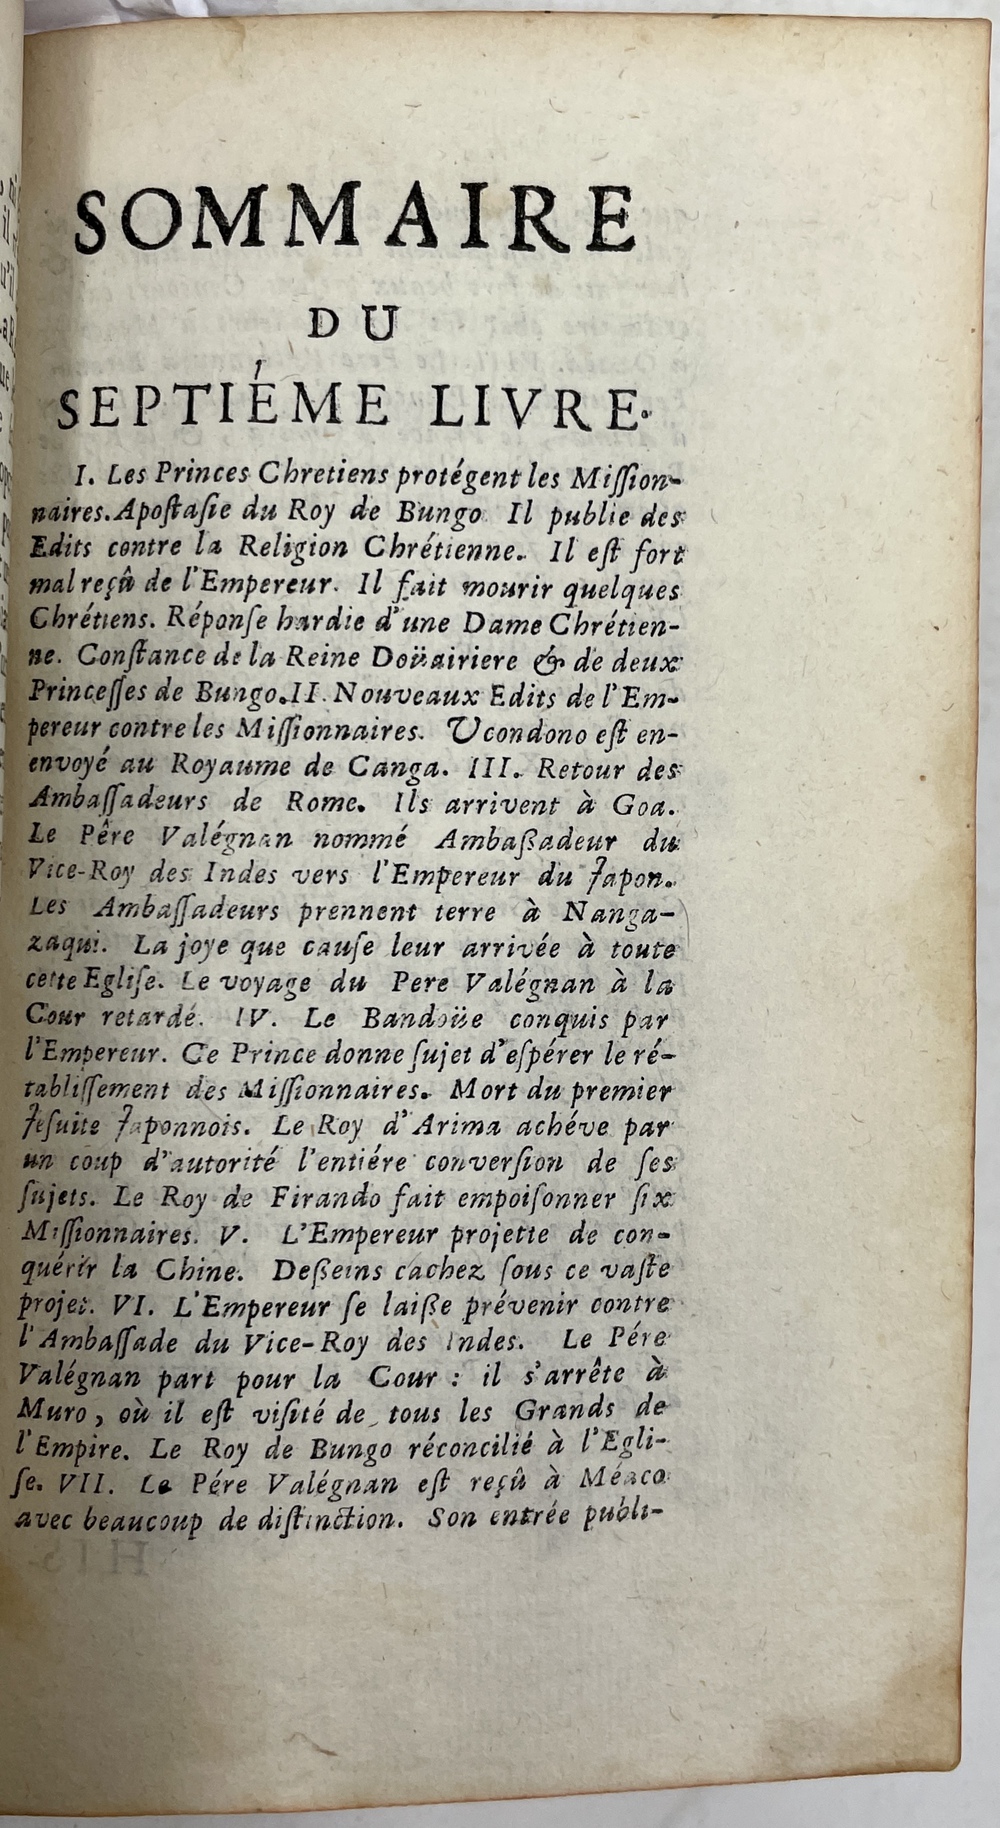 SOMMAIRE
DU
SEPTIÉME LIVRE.
I. Les Princes Chretiens protégent les Miſſion-
naires. Apoſtaſie du Roy de Bungo Il publie des
Edits contre la Religion Chrétienne. Il eſt fort
mal reçû de l'Empereur. Il fait mourir quelques
Chrétiens. Réponſe hardie d'une Dame Chrétien-
ne. Conſtance de la Reine Doüairiere & de deux
Princeſſes de Bungo. II. Nouveaux Edits de l'Em-
pereur contre les Miſſionnaires. Ucondono eſt en-
envoyé au Royaume de Canga. III. Retour des
Ambaſſadeurs de Rome. Ils arrivent à Goa.
Le Pêre Valégnan nommé Ambaßadeur du
Vice-Roy des Indes vers l'Empereur du Japon.
Les Ambaſſadeurs prennent terre à Nanga-
zaqui. La joye que cauſe leur arrivée à toute
cette Egliſe. Le voyage du Pere Valégnan à la
Cour retardé. IV. Le Bandoüe conquis par
l'Empereur. Ce Prince donne ſujet d'eſpérer le ré-
tabliſſement des Miſſionnaires. Mort du premier
Jeſuite Japonnois. Le Roy d'Arima achéve par
un coup d'autorité l'entiére converſion de ſes
ſujets. Le Roy de Firando fait empoiſonner ſix
Miſſionnaires. V. L'Empereur projette de con-
quérir la Chine. Deßeins cachez ſous ce vaſte
projet. VI. L'Empereur ſe laiße prévenir contre
l'Ambaſſade du Vice-Roy des Indes. Le Pére
Valégnan part pour la Cour : il s'arrête à
Muro, où il eſt viſité de tous les Grands de
l'Empire. Le Roy de Bungo réconcilié à l'Egli-
ſe. VII. Le Pére Valégnan eſt reçû à Méaco
avec beaucoup de diſtinction. Son entrée publi-